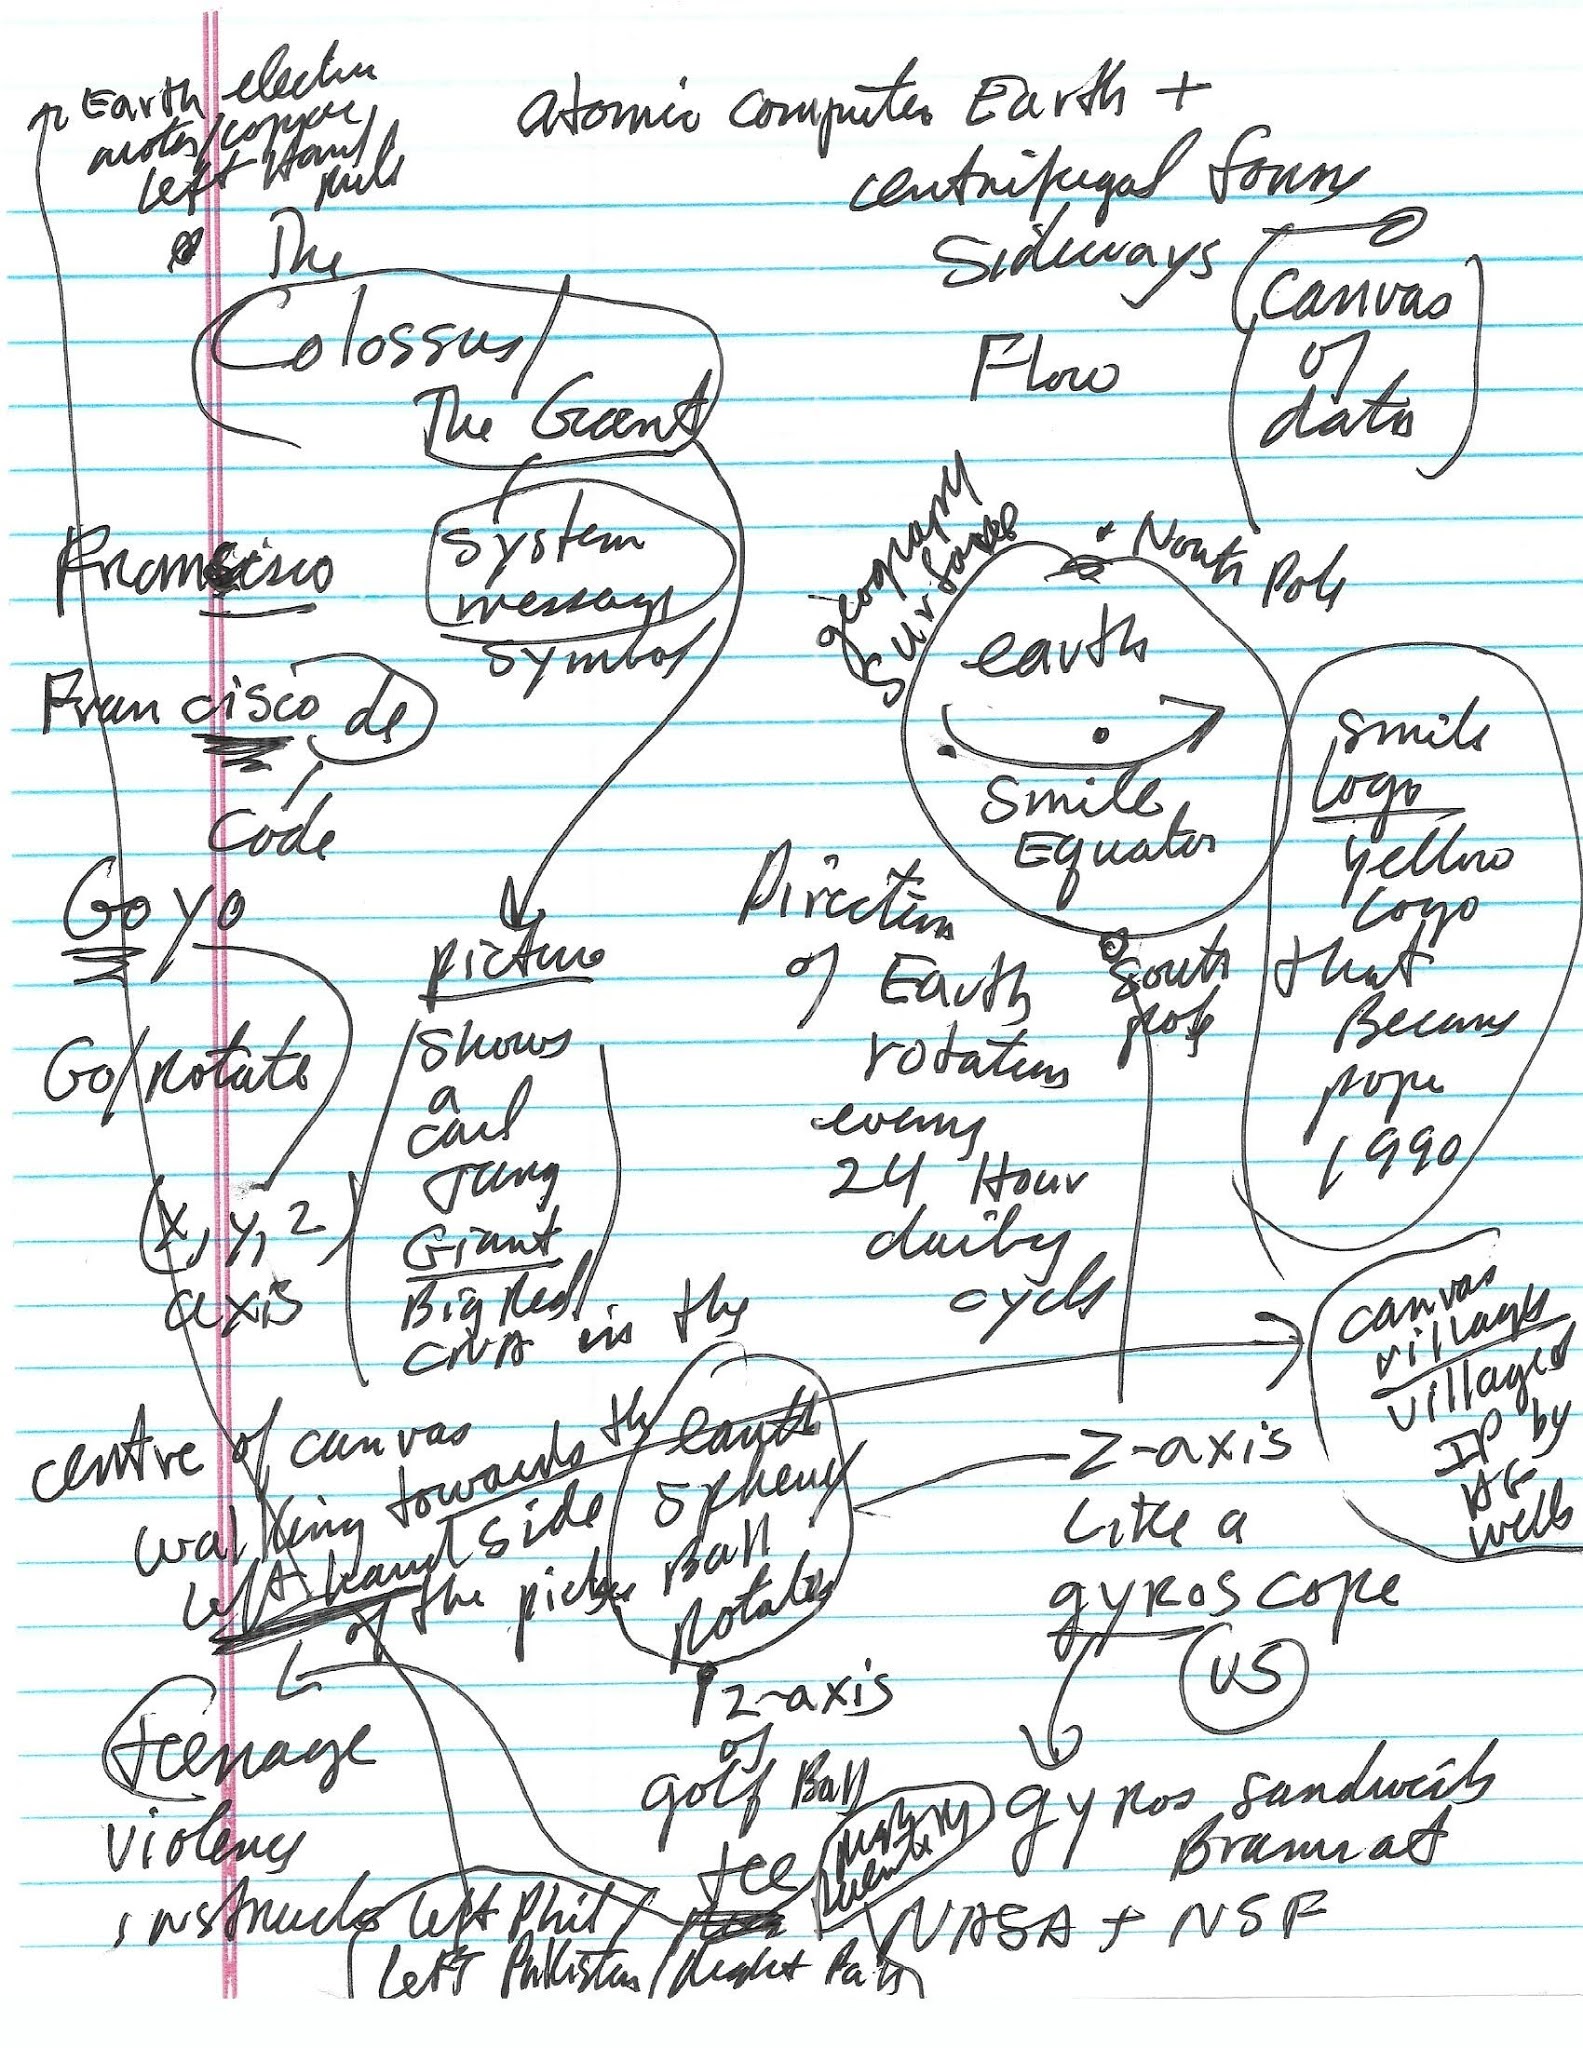 Earth electru
motor/copper/
left Hand
Rule
atomic computer Earth +
centrifugal force
Sideways
Flow
Canvas
of
data
The
Colossus/
The Giant
System
message
symbol
Francisco
Francisco de
Code
Goyo
Go/Rotate
x, y, z
axis
picture
shows
a
Carl
Jung
Giant
Big Red
in the
geography
surface
North Pole
earth
Smile
Equator
South
pole
Direction
of
Earth
rotation
every
24 Hour
daily
cycle
smile
logo
yellow
logo
that
Became
pope
1990
canvas
village
villaged
IP by
HG
wells
centre of canvas
walking towards the
left hand side
of the picture
earth
sphere/
Ball
Rotates
z-axis
like a
gyroscope
US
z-axis
of
golf Ball
tee
gyros sandwich
NASA + NSF
teenage
violence
instruct
left Phil/
left Pakistan/Right